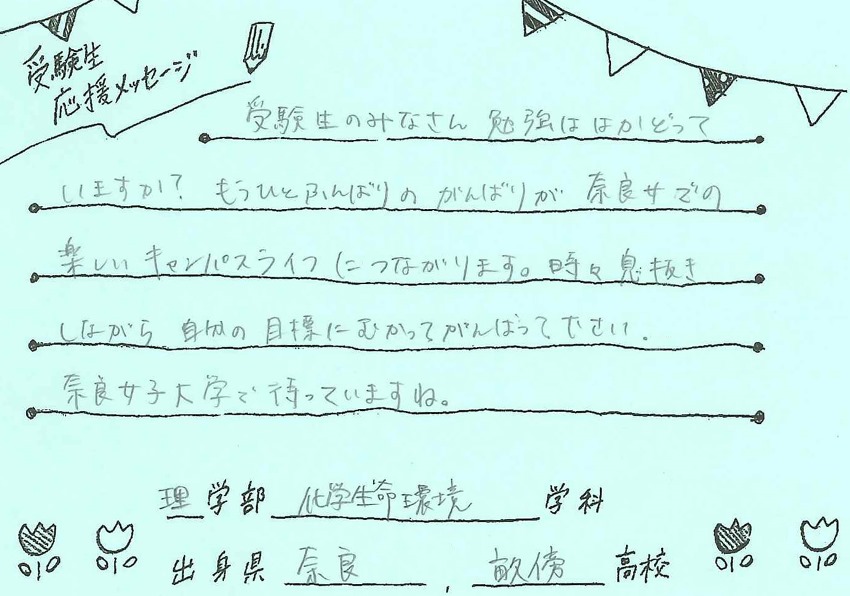 受験生
応援メッセージ
受験生のみなさん 勉強ははかどって
いますか? もうひとふんばりの がんばりが 奈良女での
楽しいキャンパスライフにつながります。時々息抜き
しながら 自分の目標にむかってがんばって下さい。
奈良女子大学で待っていますね。
理学部 化学生命環境 学科
出身県 奈良 , 畝傍 高校